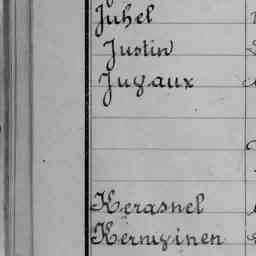 Juhel
Justin
Juyaux
Kerasnel
Kernvinen